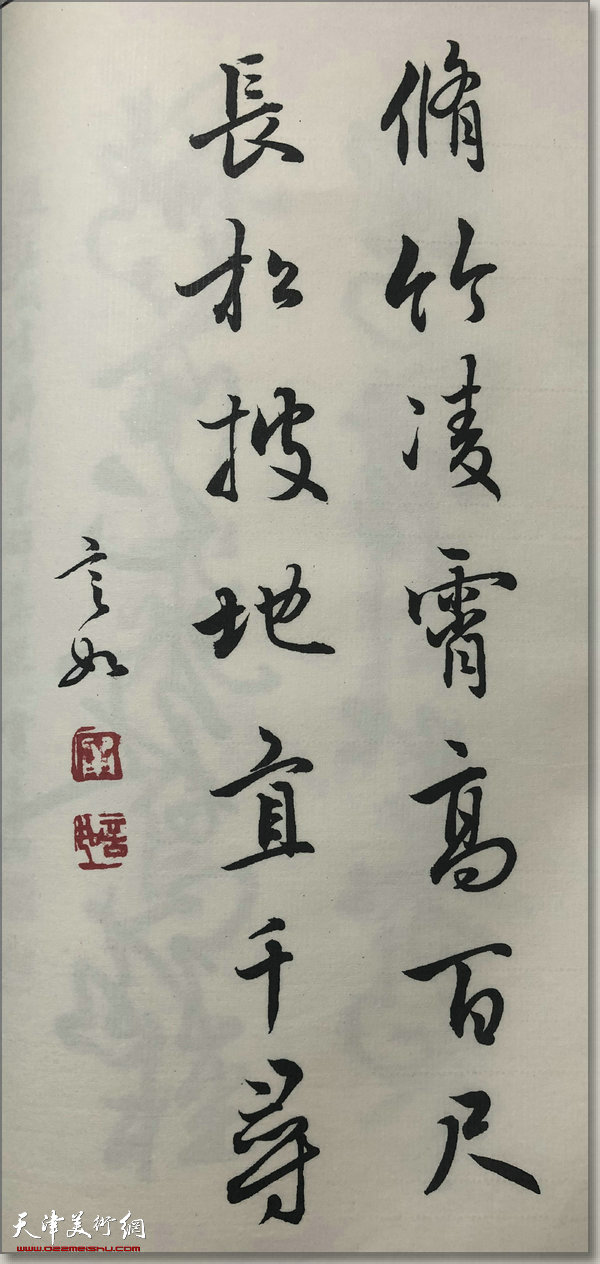 脩竹凌霄高百尺
長松拔地直千尋
如
天津美術網
www.022meishu.com